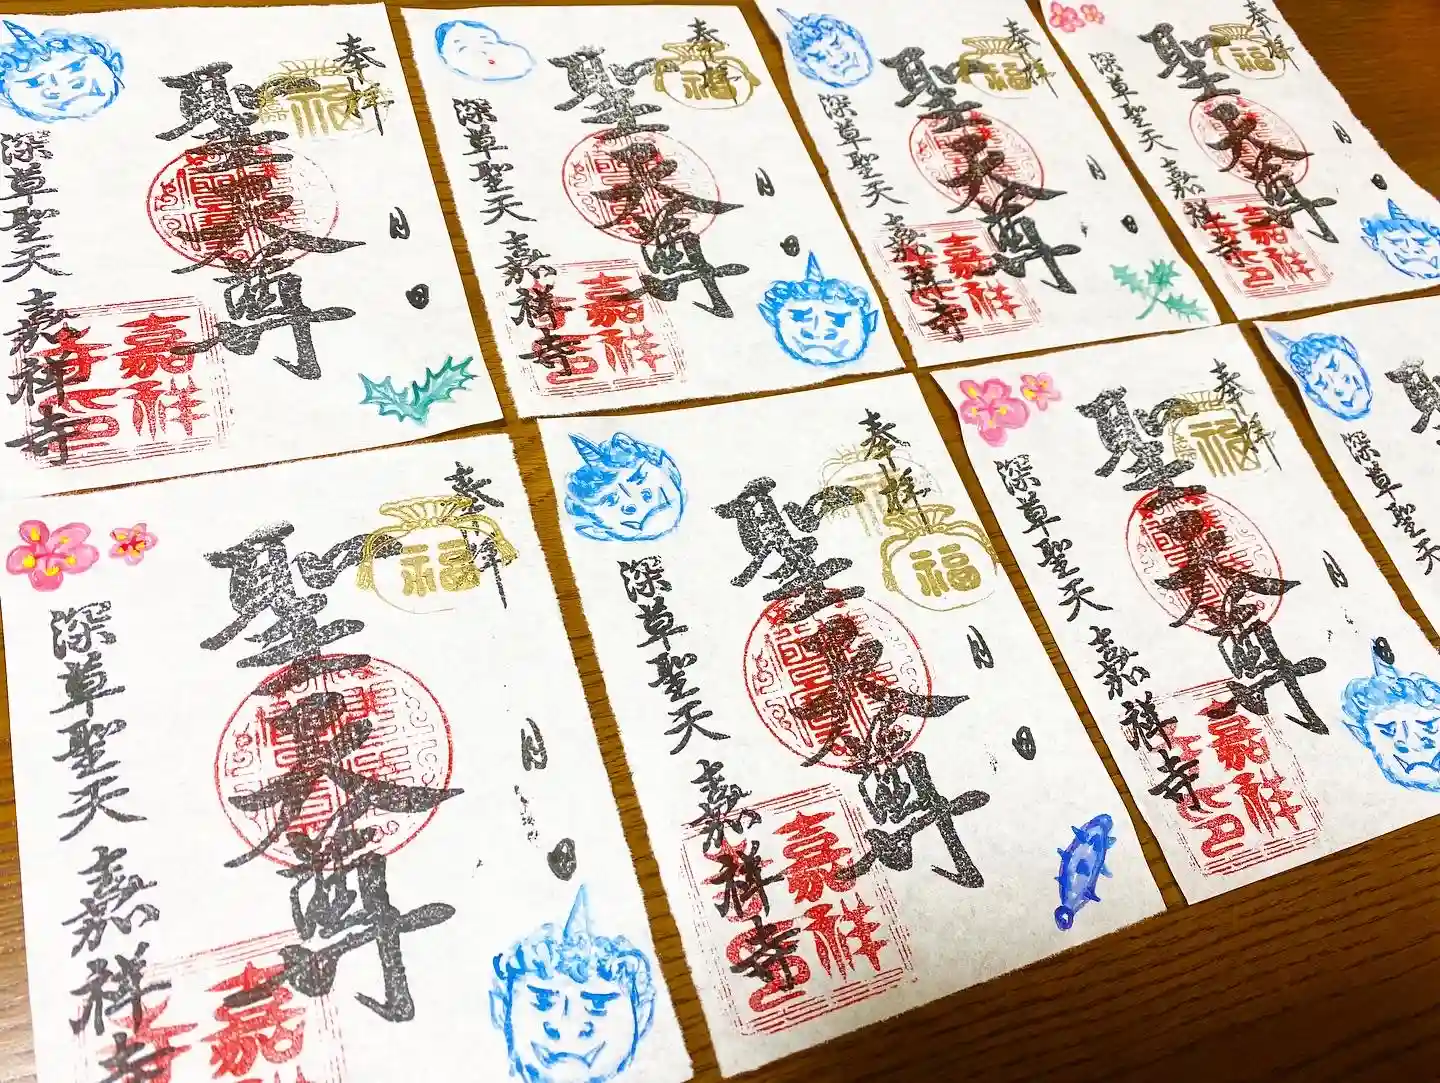 奉拝
福
聖天尊
月 日
深草聖天 嘉祥寺
嘉祥
奉拝
福
聖天尊
月 日
深草聖天 嘉祥寺
嘉祥
奉拝
福
聖天尊
月 日
深草聖天 嘉祥寺
嘉祥
奉拝
福
聖天尊
月 日
深草聖天 嘉祥寺
嘉祥
奉拝
福
聖天尊
月 日
深草聖天 嘉祥寺
嘉
奉拝
福
聖天尊
月 日
深草聖天 嘉祥寺
嘉祥
奉拝
福
聖天尊
月 日
深草聖天 嘉祥寺
嘉祥
聖
深草聖天